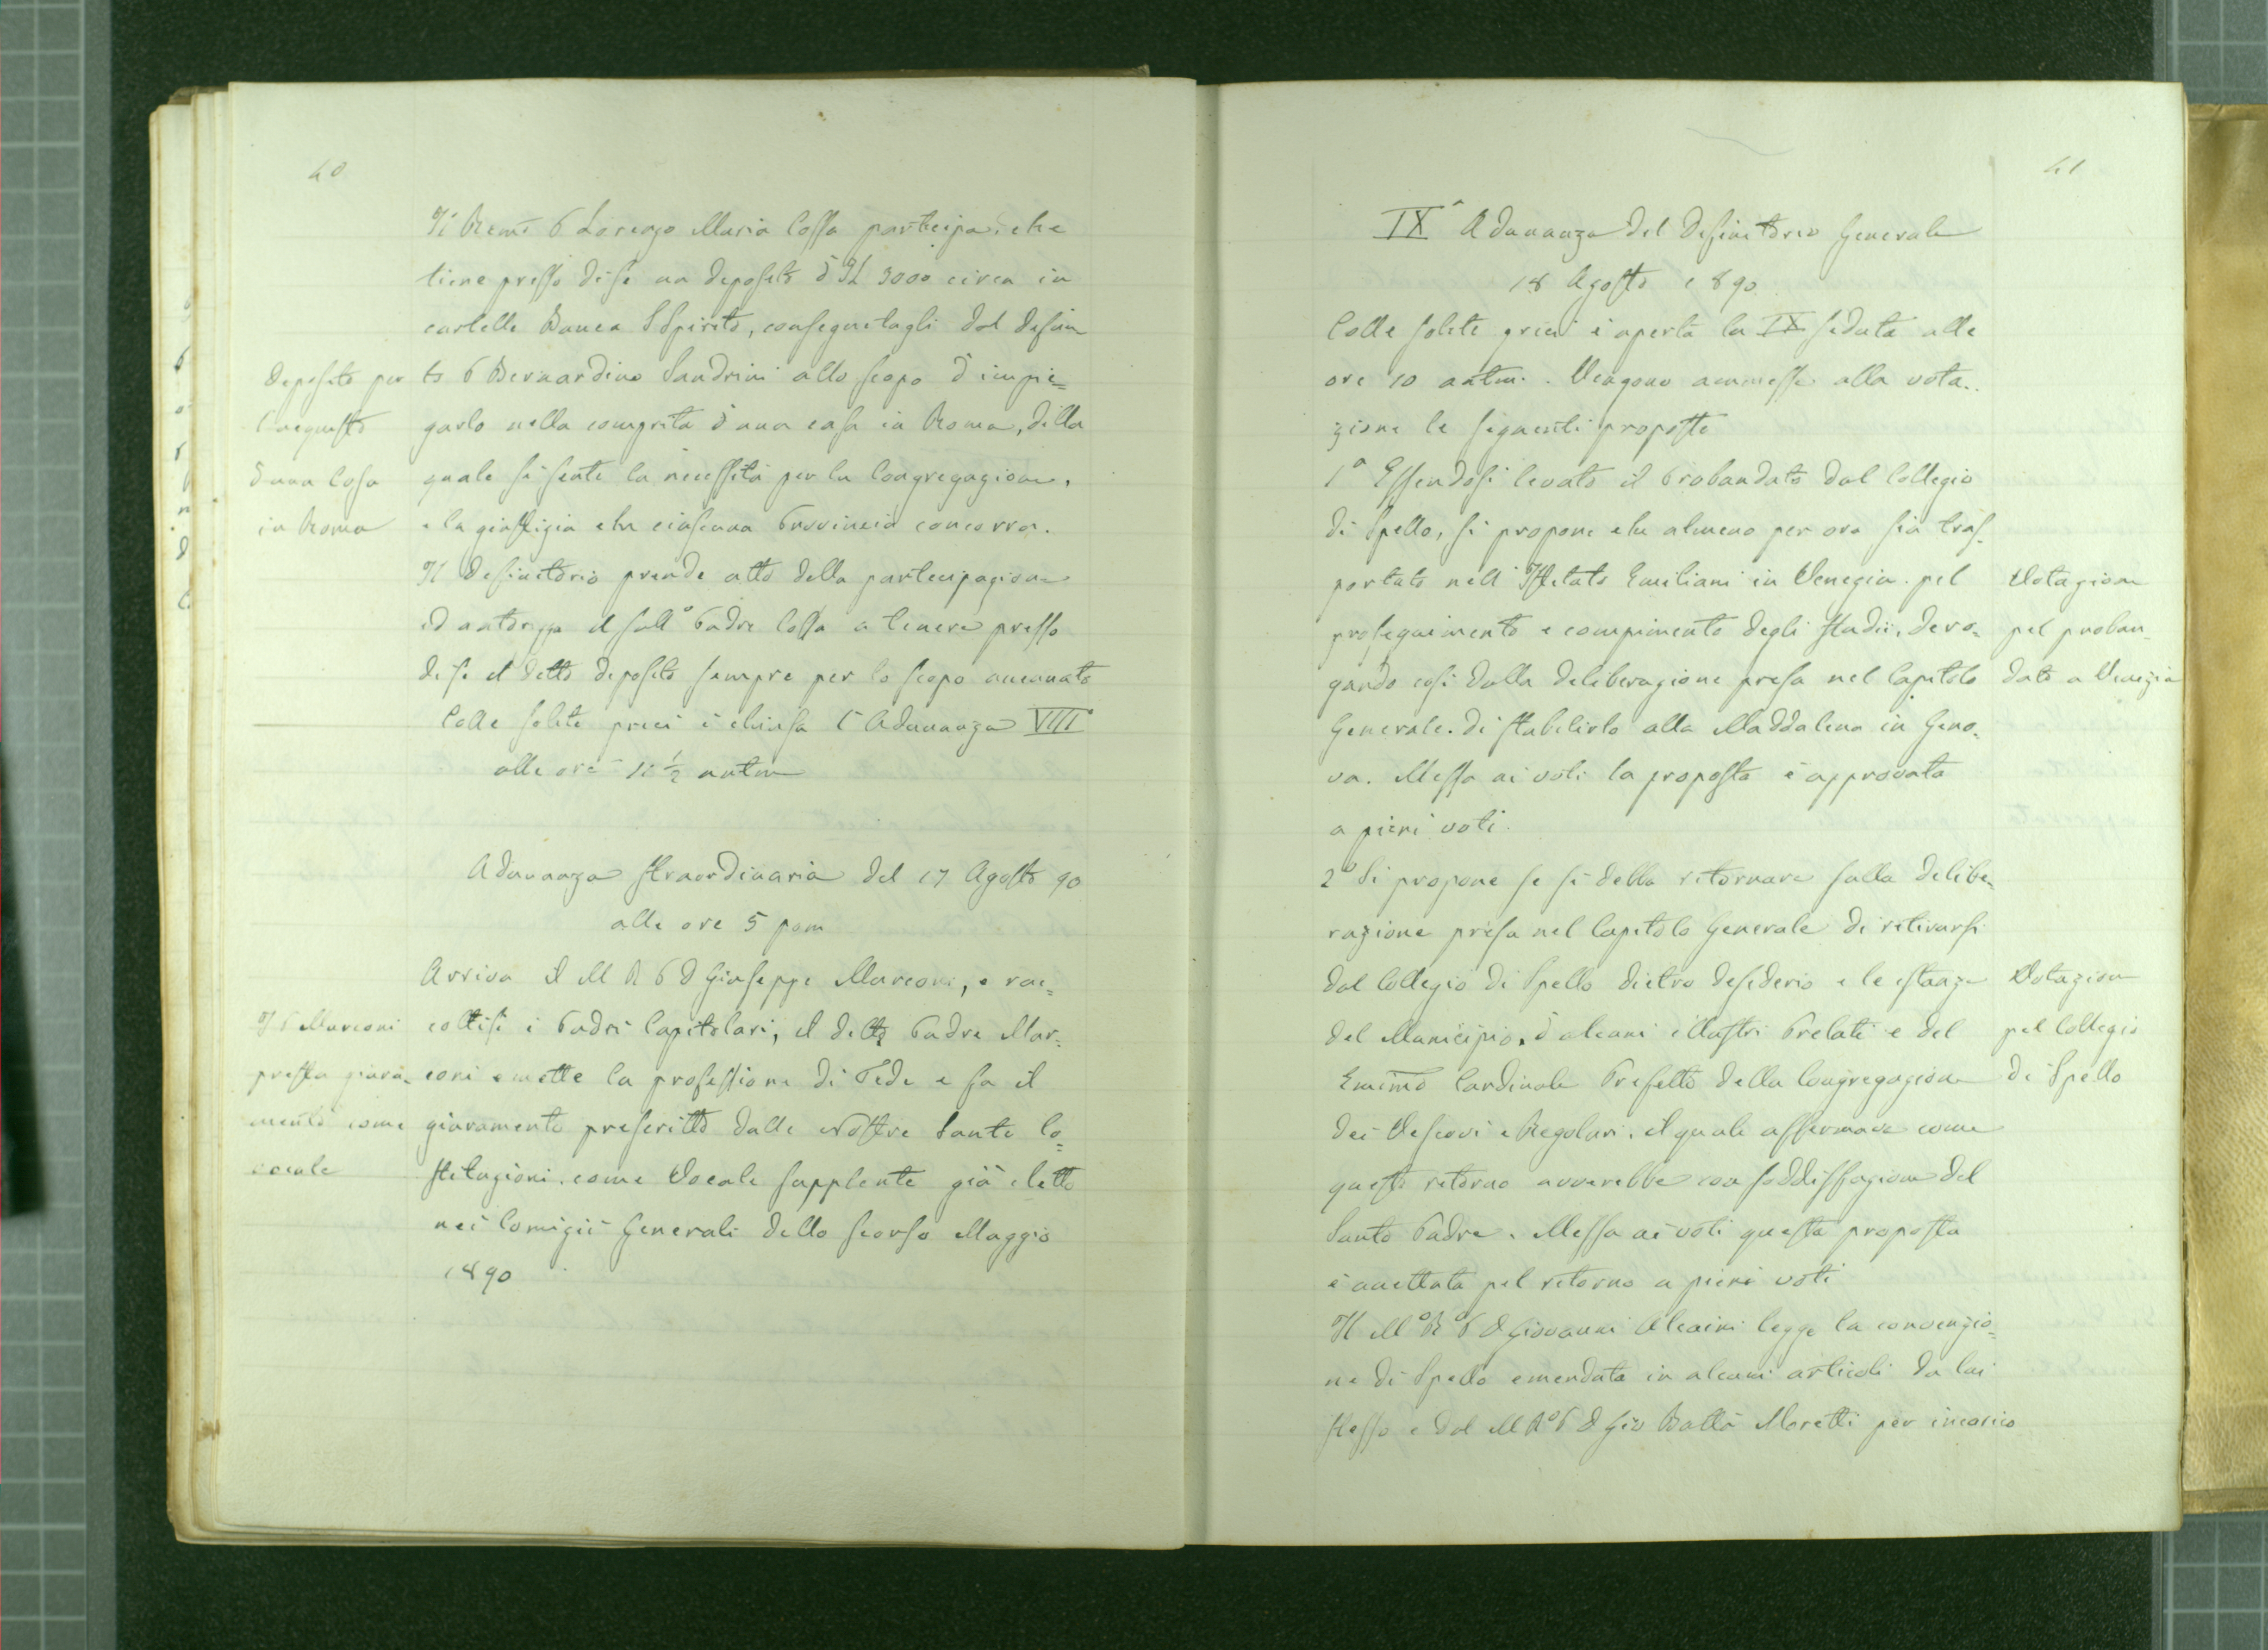 40
Il Remo P Lorenzo Maria Cossa partecipa, che
tiene presso di se un deposito d'£ 3000 circa in
cartelle Banca S Spirito, consegnatogli dal defun
to P Bernardino Sandrini allo scopo d'impie=
garlo nella comprita d'una casa in Roma, della
quale si sente la necessità per la Congregazione,
e la giustizia che ciascuna Provincia concorra.
Deposito per
l'acquisto
d'una Casa
in Roma
Il Definitorio prende atto della partecipazione
ed autorizza il sull° Padre Cossa a tenere presso
di se il detto deposito sempre per lo scopo accennato
Colle solite preci è chiusa l'Adunanza VIIIª
alle ore 11 ½ antm
Adunanza straordinaria del 17 Agosto 90
alle ore 5 pom
Arriva il M R P D Giuseppe Marconi, e rac=
coltisi i Padri Capitolari, il detto Padre Mar=
coni emette la professione di Fede e fa il
giuramento prescritto dalle Nostre Sante Co=
stituzioni, come Vocale supplente già eletto
nei Comizii Generali dello scorso Maggio
1890
Il P Marconi
presta giura=
mento come
vocale
41
IXª Adunanza del Definitorio Generale
18 Agosto 1890
Colle solite preci è aperta la IX seduta alle
ore 10 antm. Vengono ammesse alla vota..
zione le seguenti proposte
1ª Essendosi levato il Probandato dal Collegio
di Spello, si propone che almeno per ora sia tras-
portato nell'Istituto Emiliani in Venezia pel
proseguimento e compimento degli studii, dero=
gando così dalla deliberazione presa nel Capitolo
Generale di stabilirlo alla Maddalena in Geno=
va. Messa ai voti la proposta è approvata
a pieni voti.
Votazione
pel proban=
dato a Venezia
2ª Si propone se si debba ritornare sulla delibe=
razione presa nel Capitolo Generale di ritirarsi
dal Collegio di Spello dietro desiderio e le istanze
del Municipio, d'alcuni illustri Prelati e del
Eminmo Cardinale Prefetto della Congregazione
dei Vescovi e Regolari, il quale affermava come
questo ritorno avverrebbe con soddisfazione del
Santo Padre. Messa ai voti questa proposta
è accettata pel ritorno a pieni voti
Votazione
pel Collegio
di Spello
Il M° R° P D Giovanni Alcaini legge la convenzio=
ne di Spello emendata in alcuni articoli da lui
stesso e dal M R° P D Gio Batta Moretti per incarico